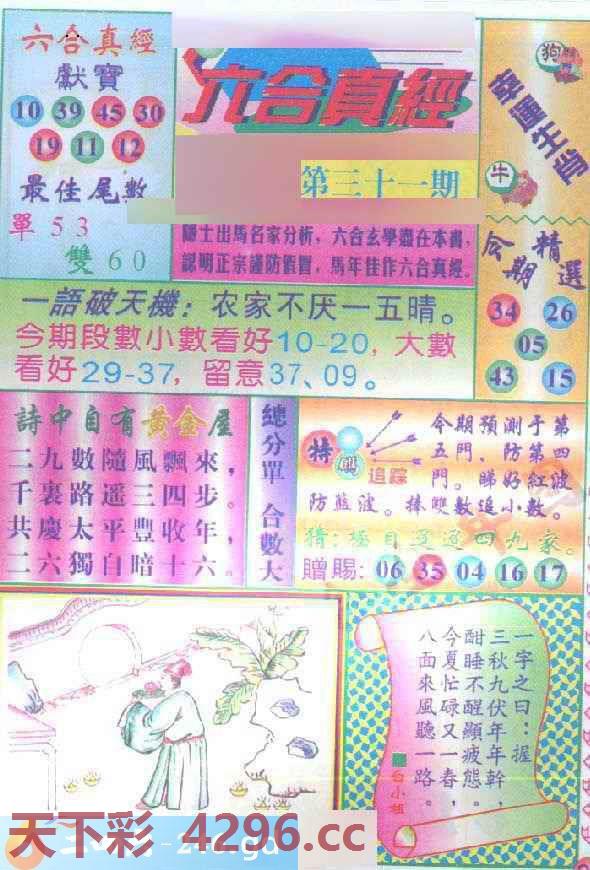 六合真經
獻寶
10 39 45 30
19 11 12
最佳尾數
單 5 3
雙 6 0
六合真經
第三十一期
隱士出馬名家分析，六合玄學盡在本書，
認明正宗謹防假冒，馬年佳作六合真經。
狗
幸運生肖
牛
精選
今期
34 26
05
43 15
一語破天機：农家不厌一五晴。
今期段數小數看好10-20，大數
看好29-37，留意37、09。
詩中自有黃金屋
二九數隨風飄來，
千裏路遥三四步。
共慶太平豐收年，
二六獨自暗十六。
總分單 合數大
特碼
追踪
今期預測于第
五門、防第四
門。睇好紅波
防藍波。捧雙數追小數。
四九家。
贈賜：06 35 04 16 17
一字之曰：握
三秋九伏年年幹，
酣睡不醒顯疲態。
今夏忙碌又一春，
八面來風聽一路。
台小姐
天下彩 4296.cc